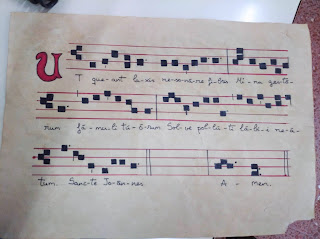 UT que-ant la-xis re-so-na-re fi-bris Mi-ra ges-tó-
rum fá-mu-li tu-ó-rum Sol-ve pol-lú-ti lá-bi-i re-á-
tum. Sanc-te Jo-an-nes A-men.